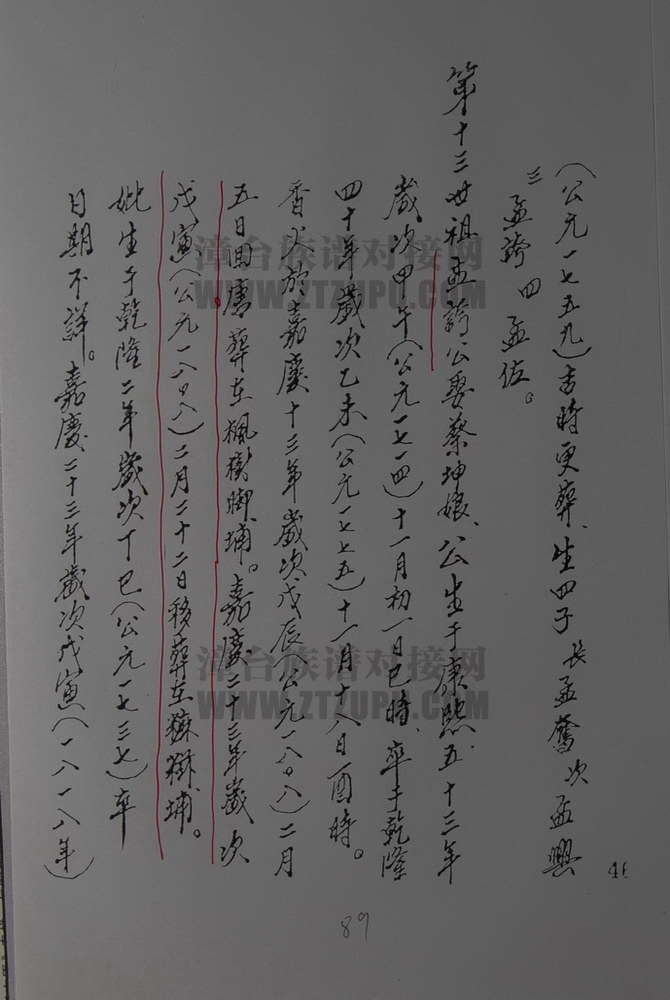 (公元一七五九)吉時更葬、生四子 長孟奮 次孟興
三孟誇 四孟佐。
第十三世祖孟誇公妻蔡坤娘、公生于康熙五十三年
歲次甲午(公元一七一四)十一月初一日巳時、卒于乾隆
四十年歲次乙未(公元一七七五)十一月十八日酉時。
香火於嘉慶十三年歲次戊辰(公元一八〇八)二月
五日回唐葬在楓樹脚埔。嘉慶二十三年歲次
戊寅(公元一八〇八)二月二十二日移葬在獅埔。
妣生于乾隆二年歲次丁巳(公元一七三七)卒
日期不詳。嘉慶二十三年歲次戊寅(一八一八年)
46
89
漳台族谱对接网
WWW.ZTZUPU.COM
漳台族谱对接网
WWW.ZTZUPU.COM